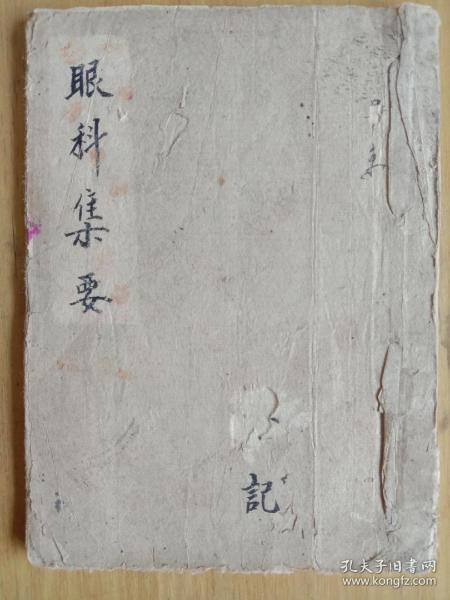 眼科集要
記
孔夫子旧书网
www.kongfz.com